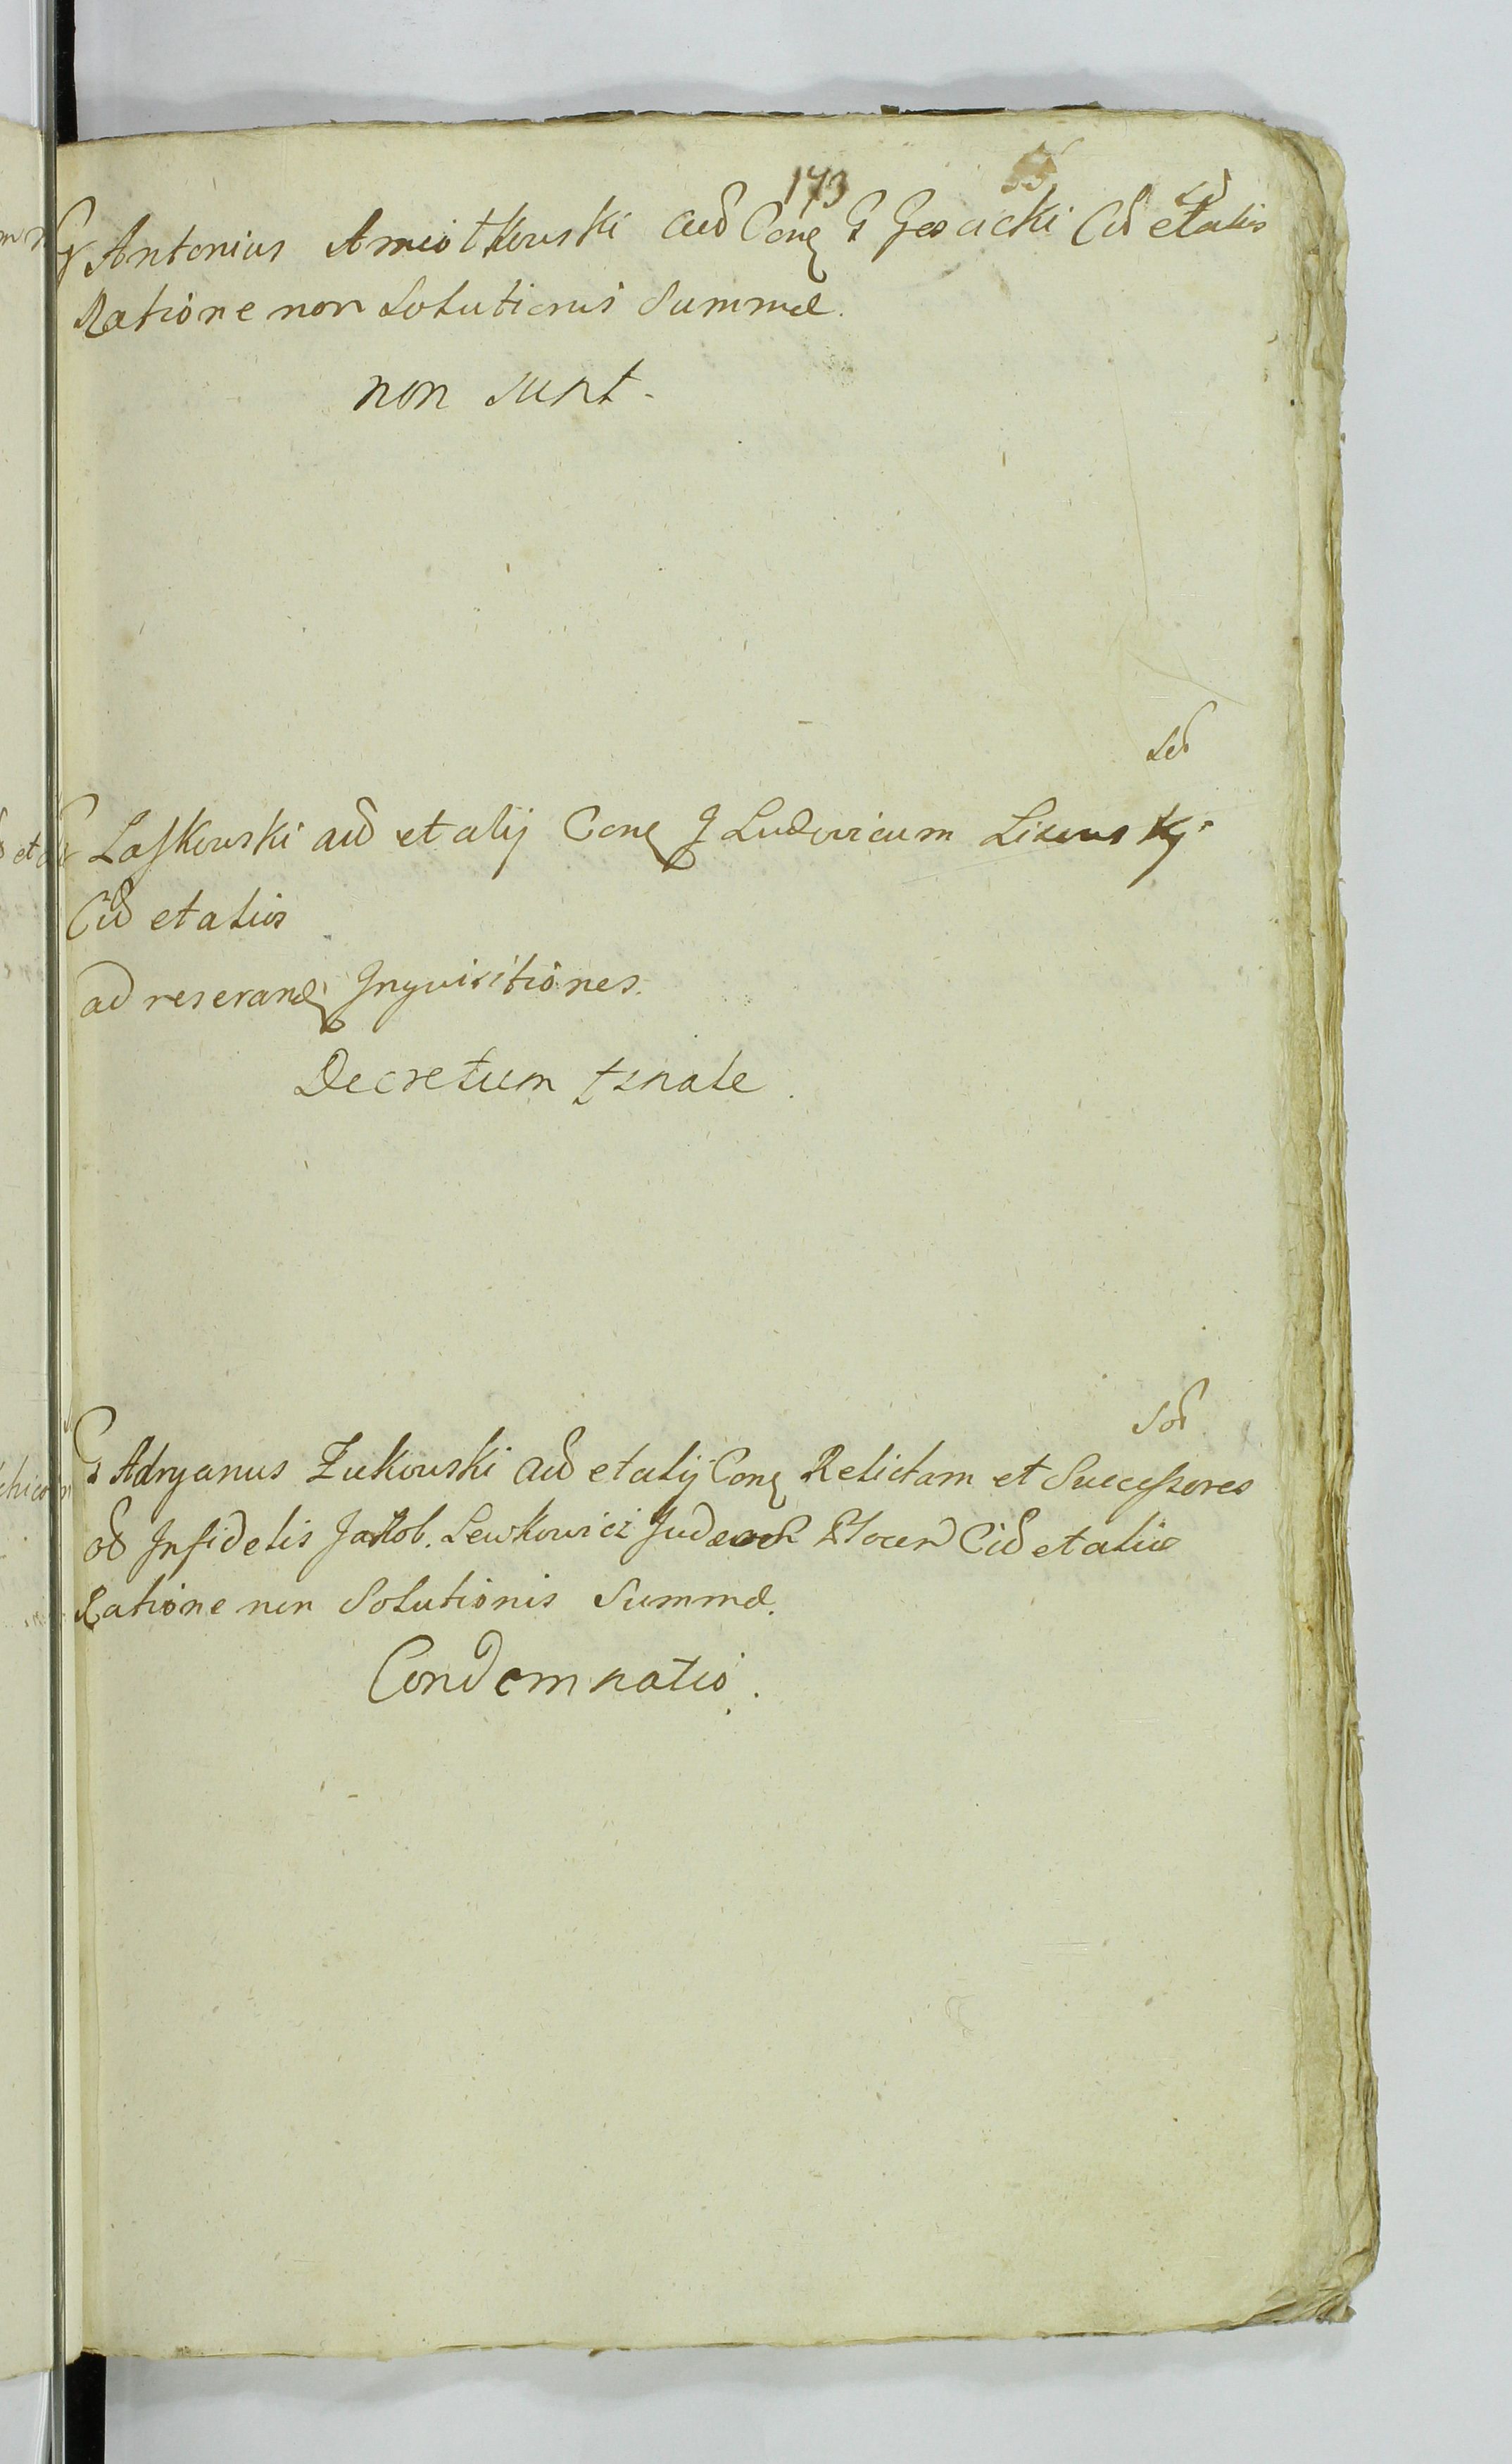 173
G Antonius Amiotkowski Aĉd Con̄q G Gosacki Cd̄ et aliis
Ratione non Solutionis Summæ.
non sunt.
G Laskowski ad̄ et alij Conq G Ludovicum
Cd̄ et alios
ad reserand Inquisitiones.
Decretum finale.
G Adryanus Zukowski ad̄ et alij Conq Relictam et Successores
od Infidelis Jakob. Lewkowicz Cd̄ et alios
Ratione non Solutionis Summæ.
Condemnatio.